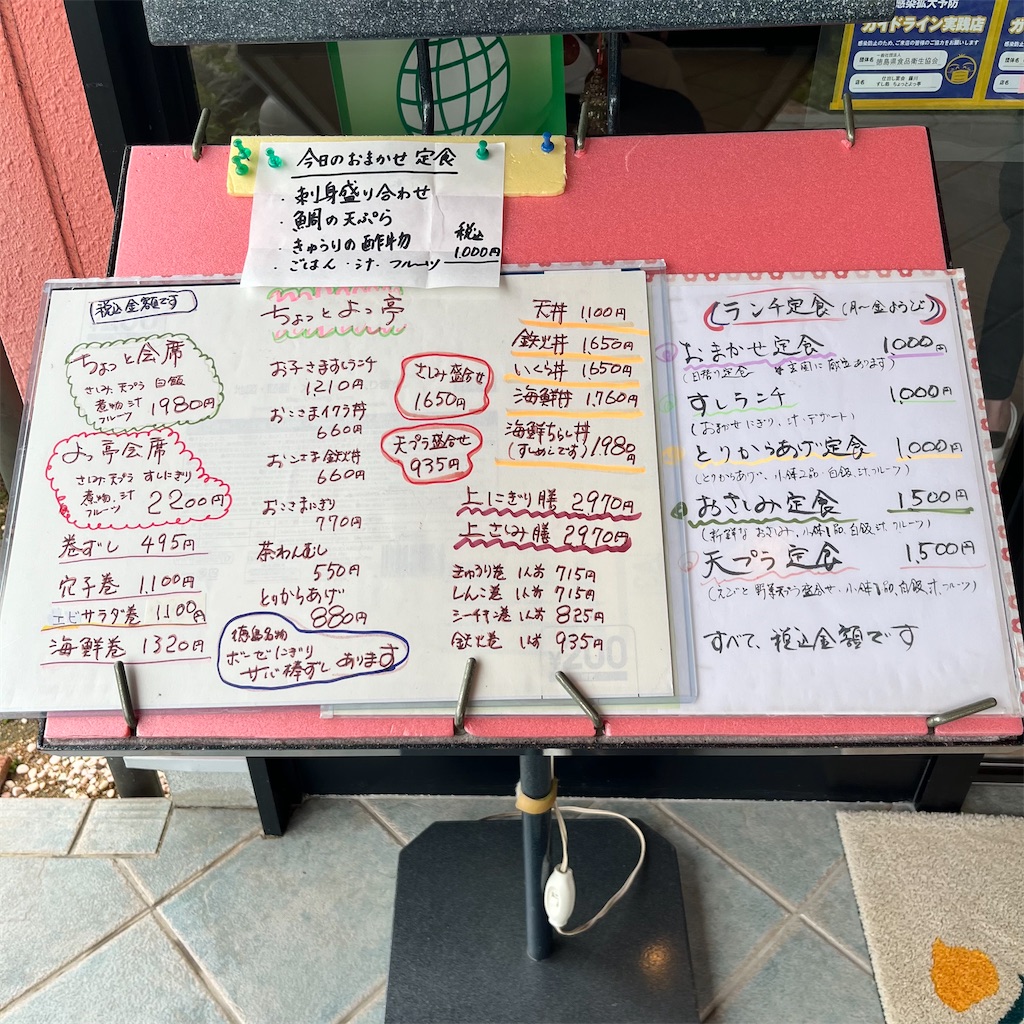 感染拡大予防
ガイドライン実践店
感染防止のため、ご来店の皆様のご協力をお願いします
団体名
一般社団法人
徳島県食品衛生協会
店名
すし処 ちょっとよっ亭
今日のおまかせ 定食
・刺身盛り合わせ
・鯛の天ぷら
・きゅうりの酢物
・ごはん・汁・フルーツ
税込
1.000円
税込金額です
ちょっと会席
さしみ 天プラ 白飯
煮物 汁
フルーツ
1980円
よっ亭会席
さしみ 天プラ すしにぎり
煮物、汁
フルーツ
2200円
巻ずし 495円
穴子巻 1.100円
エビサラダ巻 1100円
海鮮巻 1320円
ちょっとよっ亭
お子さますしランチ
1.210円
おこさまイクラ丼
660円
おこさま鉄火丼
660円
おこさまにぎり
770円
茶わんむし
550円
とりからあげ
880円
徳島名物
ボーゼにぎり
サバ棒ずし あります
さしみ盛合せ
1650円
天プラ盛合せ
935円
天丼 1,100円
鉄火丼 1,650円
いくら丼 1,650円
海鮮丼 1,760円
海鮮ちらし丼
(すしめしです) 1,980円
上にぎり膳 2970円
上さしみ膳 2970円
きゅうり巻 1人前 715円
しんこ巻 1人前 715円
シーチキン巻 1人前 825円
鉄火巻 1人前 935円
ランチ定食 (月〜金ようび)
おまかせ定食 1,000円
(日替り定食 ※玄関に献立あります)
すしランチ 1,000円
(おまかせにぎり、汁・デザート)
とりからあげ定食 1,000円
(とりからあげ、小鉢二品・白飯、汁、フルーツ)
おさしみ定食 1500円
(新鮮なおさしみ、小鉢1品、白飯、汁、フルーツ)
天プラ定食 1,500円
(えびと野菜天プラ盛合せ・小鉢1品、白飯、汁、フルーツ)
すべて、税込金額です